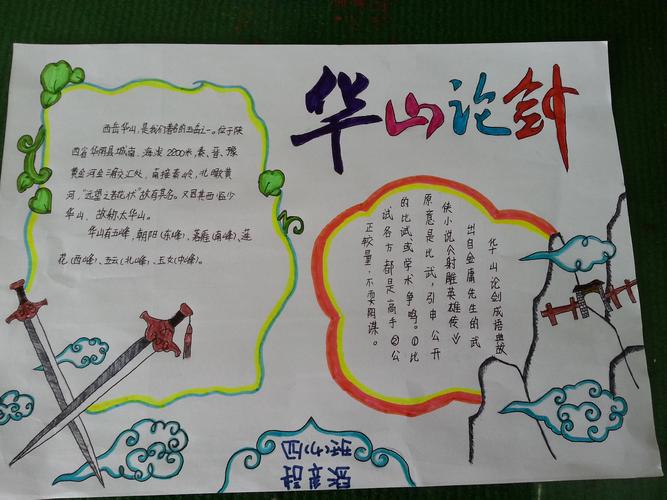 华山论剑
西岳华山,是我们著名的五岳之一。位于陕
西省华阴县城南,海拔2200米,秦、晋、豫
黄金河金三角交汇处,南接秦岭,北瞰黄
河,“远望之若花状”故有其名。又因其西临少
华山,故称太华山。
华山有五峰,朝阳(东峰)、落雁(南峰)、莲
花(西峰)、五云(北峰)、玉女(中峰)。
华山论剑成语典故
出自金庸先生的武
侠小说《射雕英雄传》
原意是比武,引申公开
的比试或学术争鸣。①比
试各方都是高手②公
正较量,不要阴谋。